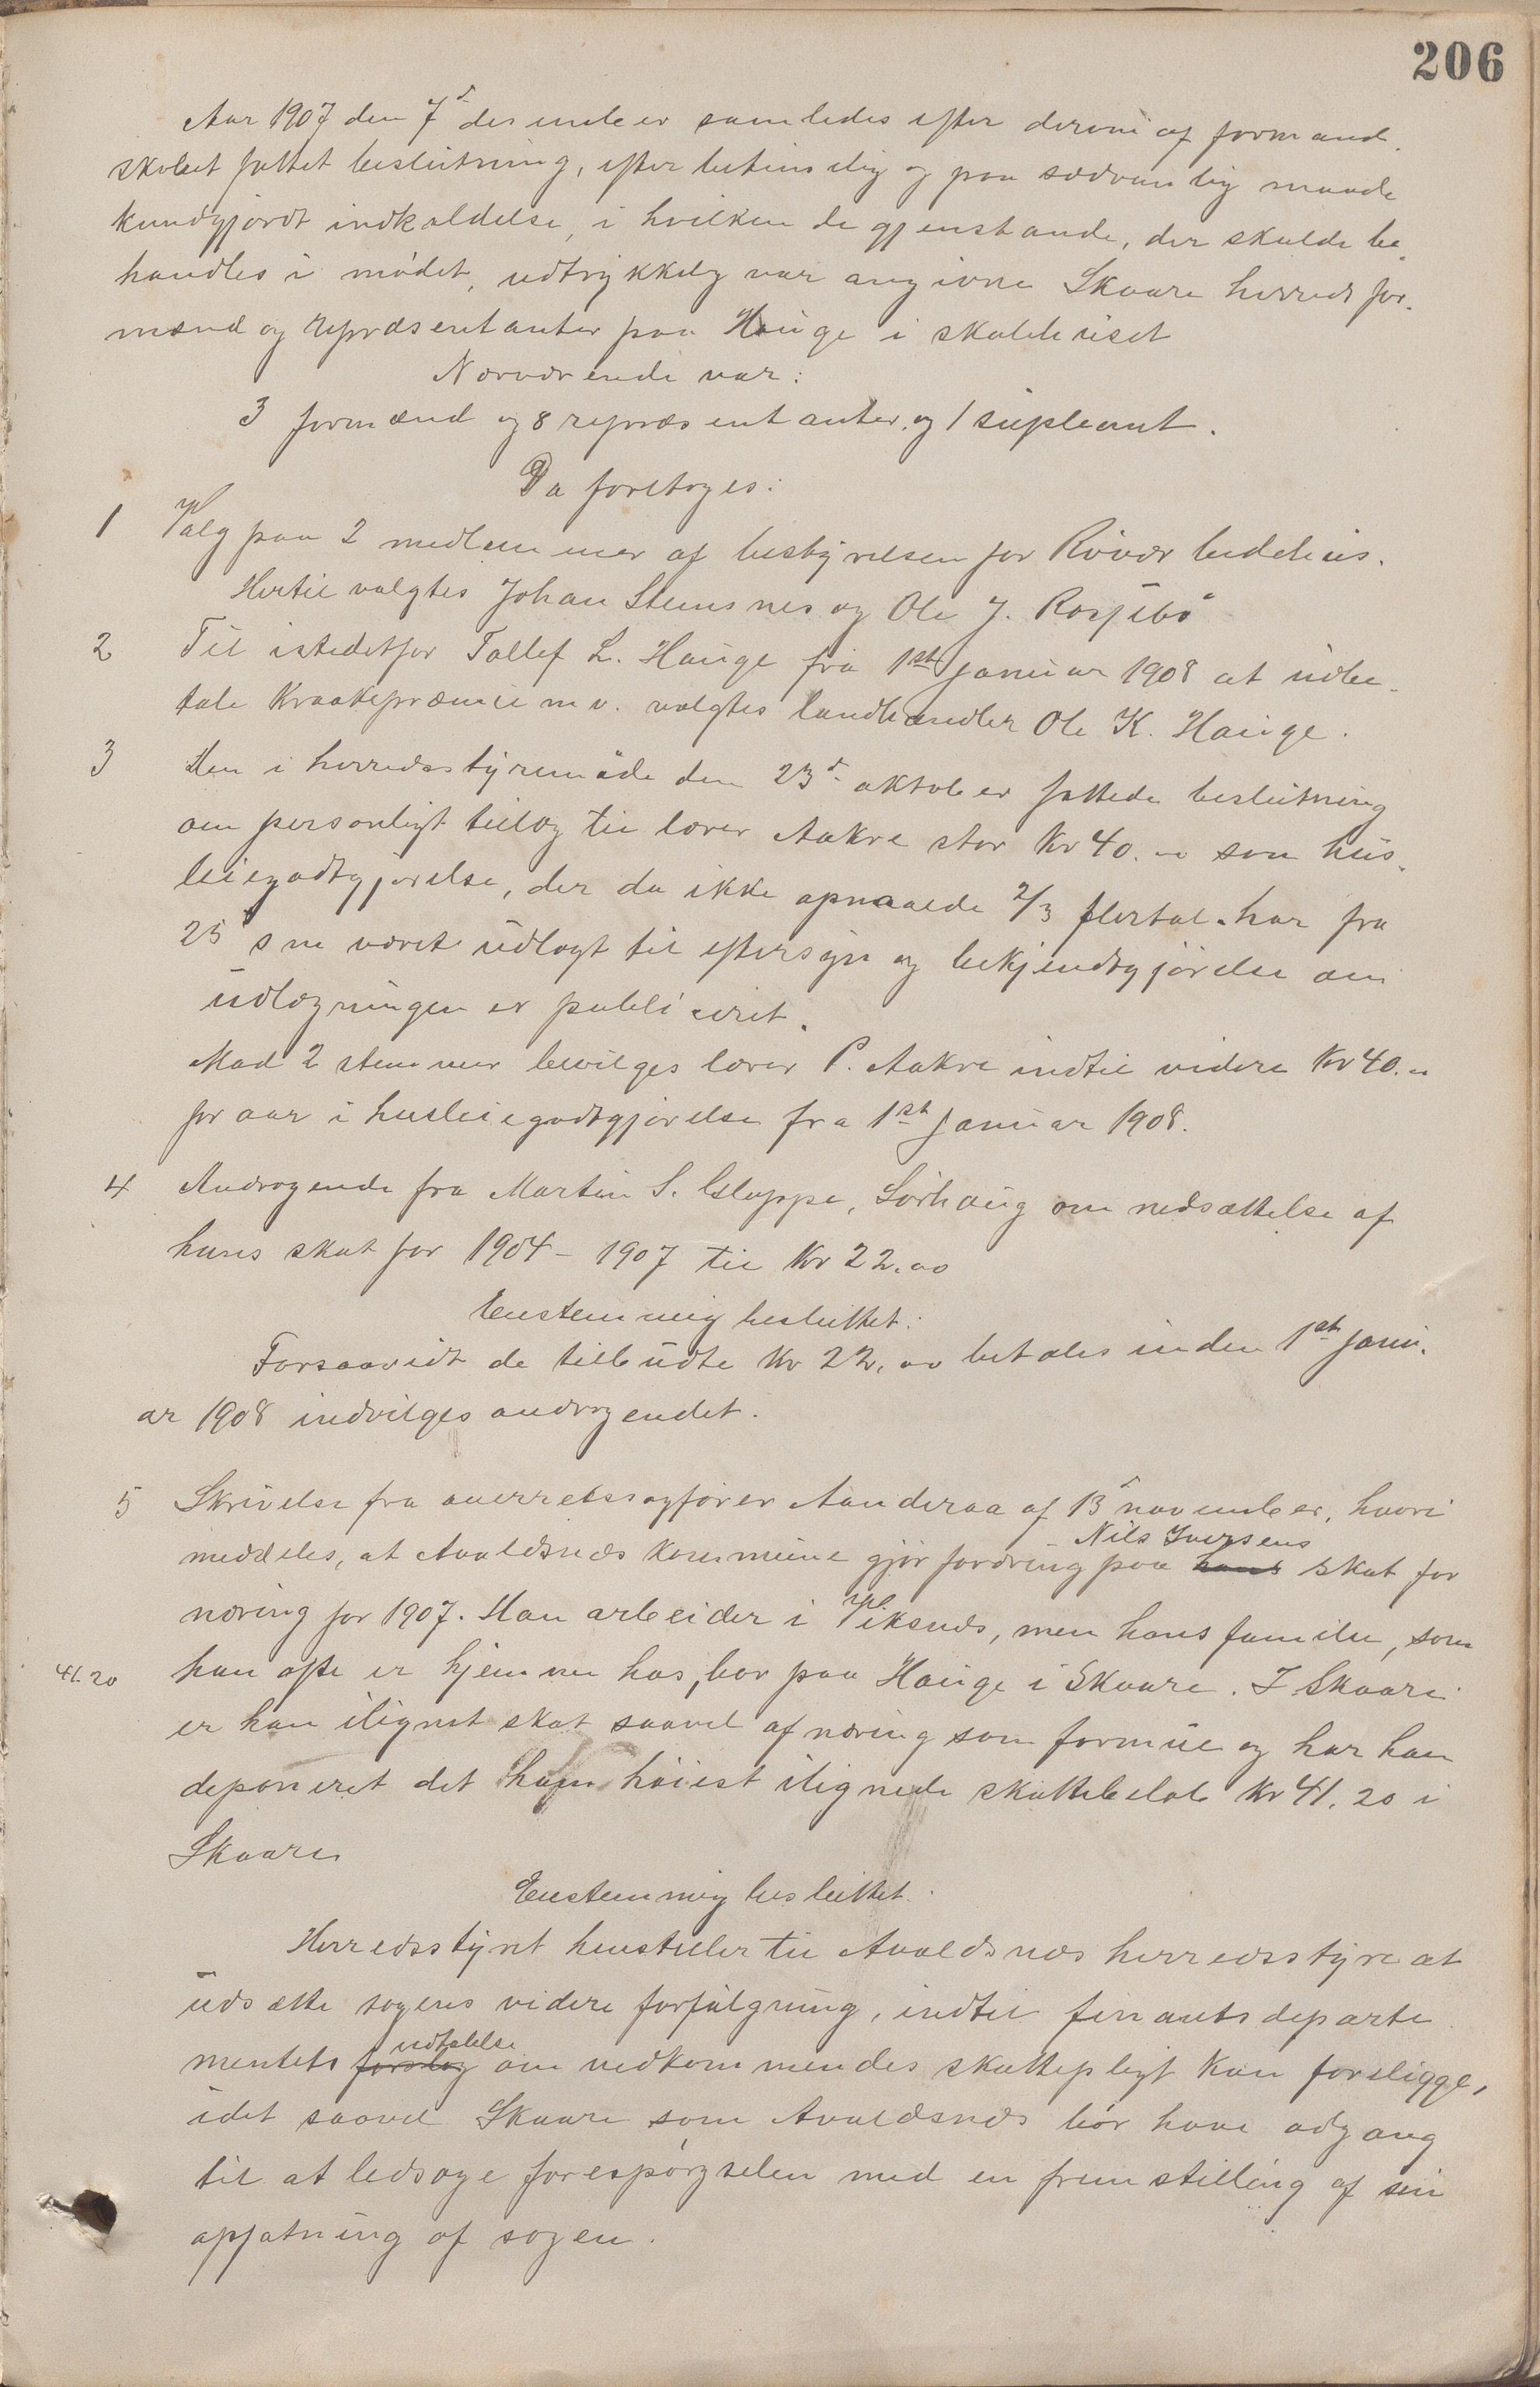 206
Aar 1907 den 7d december samledes efter derom af formand-
skabet fattet beslutning, efter betimelig og paa sædvanlig maade
kundgjordt indkaldelse, i hvilken de gjenstande, der skulde be-
handles i mødet, udtrykkelig var angivne Skaare herreds for-
mænd og repræsentanter paa Hauge i skolehuset
Nærværende var:
3 formænd og 8 repræsentanter. og 1 supleant.
Da foretoges:
1 Valg paa 2 medlemmer af bestyrelsen for Røvær bedehus.
Hertil valgtes Johan Stemsnes og Ole J.
2 Til istedetfor Tollef L. Hauge fra 1st januar 1908 at udbe-
tale Kraakepræmie m v. valgtes landhandler Ole K. Hauge.
3 Den i herredsstyremøde den 23d oktober fattede beslutning
om personligt tillæg til lærer Aakre stor Kr 40.00 som hus-
leiegodtgjørelse, der da ikke opnaaede 2/3 flertal har fra
25d s m været udlagt til eftersyn og bekjendtgjørelse om
udlægningen er publiceret.
Mod 2 stemmer bevilges lærer P. Aakre indtil videre Kr 40.00
pr aar i husleiegodtgjørelse fra 1st januar 1908.
4 Andragende fra Martin S. Gloppe, Sørhaug om nedsættelse af
hans skat for 1904 - 1907 til Kr 22.00
Enstemmig besluttet:
Forsaavidt de tilbudte Kr 22.00 betales inden 1st janu-
ar 1908 indvilges andragendet.
5 Skrivelse fra overretssagfører Aanderaa af 13d november, hvori
Nils Iversens
meddeles, at Avaldsnes kommune gjør fordring paa hans skat for
næring for 1907. Han arbeider i Viksnes, men hans familie, som
41.20 han ofte er hjemme hos, bor paa Hauge i Skaare. I Skaare
er han ilignet skat saavel af næring som formue og har han
deponeret det ham høiest ilignede skattebeløb Kr 41.20 i
Skaare
Enstemmig besluttet:
Herredsstyret henstiller til Avaldsnes herredsstyre at
udsætte sagens videre forfølgning, indtil finantsdeparte
udtalelse
mentets forslag om vedkommendes skattepligt kan foreligge,
idet saavel Skaare som Avaldsnes bør have adgang
til at ledsage forespørgselen med en fremstilling af sin
opfatning af sagen.